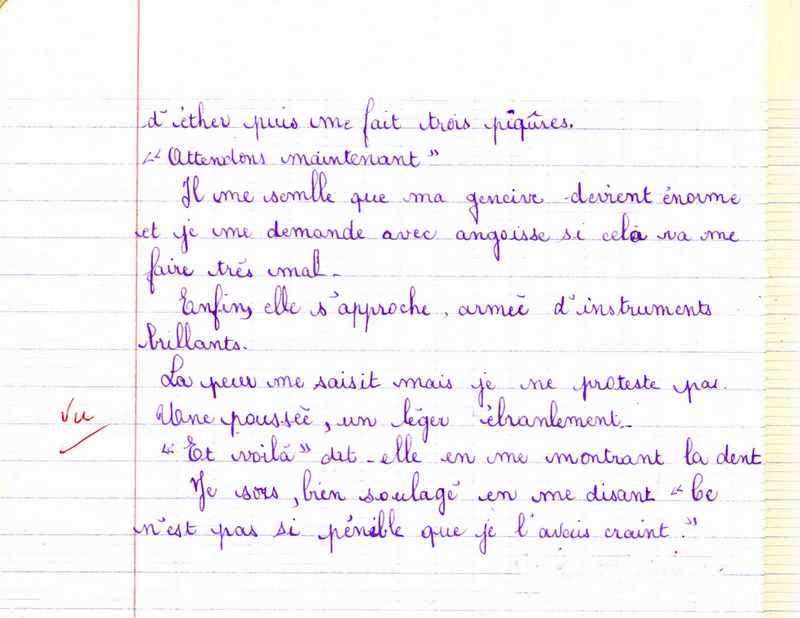 d'éther puis me fait trois piqûres.
"Attendons maintenant"
Il me semble que ma gencive devient énorme
et je me demande avec angoisse si cela va me
faire très mal.
Enfin, elle s'approche, armée d'instruments
brillants.
La peur me saisit mais je ne proteste pas.
Une poussée, un léger ébranlement.
Vu
"Et voilà" dit-elle en me montrant la dent
Je sors, bien soulagé en me disant "Ce
n'est pas si pénible que je l'avais craint."